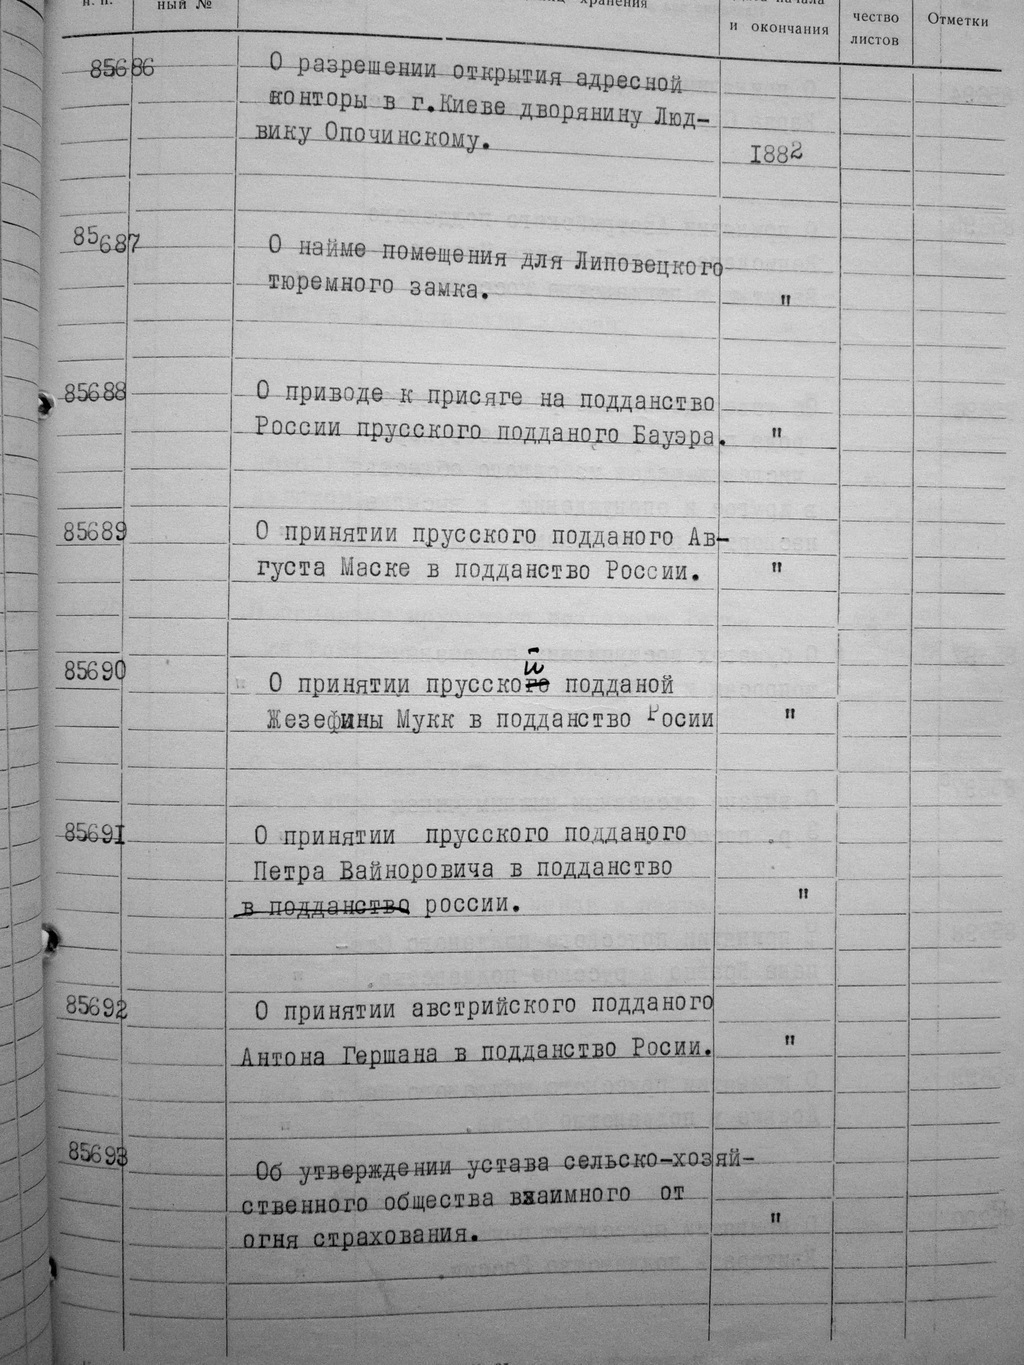 н. п.
ный №
хранения
и окончания
чество
листов
Отметки
85686
О разрешении открытия адресной
конторы в г.Киеве дворянину Люд-
вику Опочинскому.
1882
85687
О найме помещения для Липовецкого
тюремного замка.
"
85688
О приводе к присяге на подданство
России прусского подданого Бауэра.
"
85689
О принятии прусского подданого Ав-
густа Маске в подданство России.
"
85690
й
О принятии прусского подданой
Жезефины Мукк в подданство Росии
"
85691
О принятии прусского подданого
Петра Вайноровича в подданство
в подданство россии.
"
85692
О принятии австрийского подданого
Антона Гершана в подданство Росии.
"
85693
Об утверждении устава сельско-хозяй-
ственного общества взаимного от
огня страхования.
"